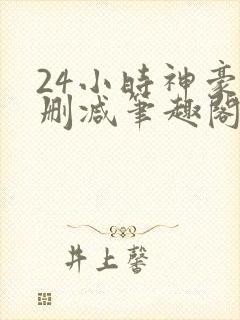 24小時神豪
删减筆趣閣
井上馨